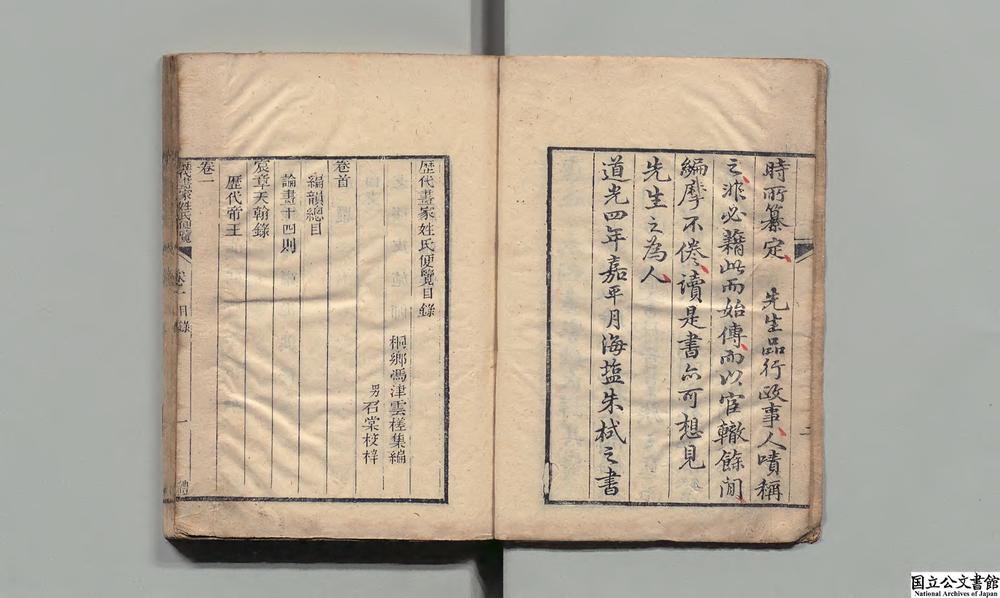 時所纂定　先生品行政事人嘖稱
之非必藉此而始傳而以官轍餘閒
編摩不倦讀是書亦可想見
先生之為人
道光四年嘉平月海塩朱栻之書
二
歷代畫家姓氏便覽目錄
桐鄉馮津雲槎集編
男石棠校梓
卷首
編韻總目
論畫十四則
宸章天翰錄
歷代帝王
卷一
歷代畫家姓氏便覽
卷一
目錄
一
国立公文書館
National Archives of Japan